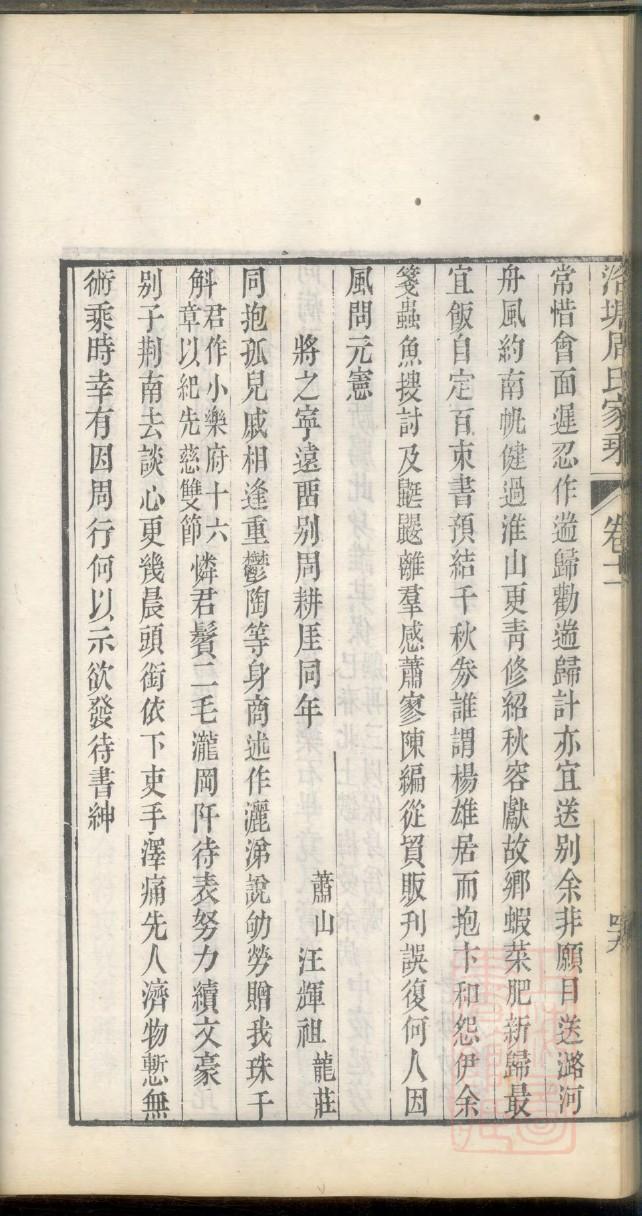 洛塘周氏家乘 卷十二
常惜會面遲忍作遄歸勸遄歸計亦宜送別余非願目送潞河
舟風約南帆健過淮山更靑修紹秋容獻故鄉蝦菜肥新歸最
宜飯自定百束書預結千秋劵誰謂楊雄居而抱卞和怨伊余
箋蟲魚搜討及鼮鼹離羣感蕭寥陳編從買販刋誤復何人因
風問元憲
將之寧遠畱別周耕厓同年 蕭山汪輝祖龍莊
同抱孤兒戚相逢重鬱陶等身商述作灑涕說劬勞贈我珠千
斛君作小樂府十六章以紀先慈雙節憐君鬢二毛瀧岡阡待表努力續文豪
別子荆南去談心更幾晨頭銜依下吏手澤痛先人濟物慙無
術乘時幸有因周行何以示欲發待書紳